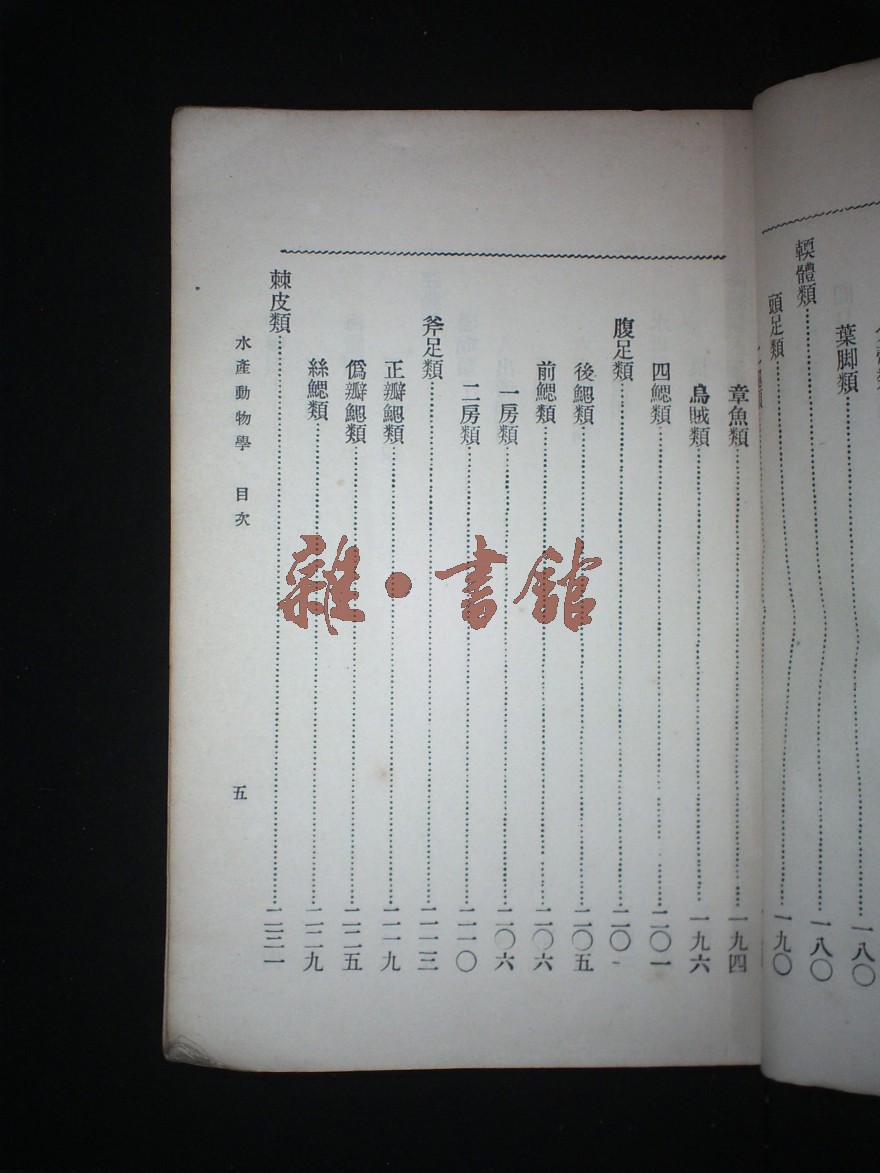 葉脚類…一八〇
輭體類…一八〇
頭足類…一九〇
章魚類…一九四
烏賊類…一九六
四鰓類…二〇一
腹足類…二〇一
後鰓類…二〇五
前鰓類…二〇六
一房類…二〇六
二房類…二一〇
斧足類…二一三
正瓣鰓類…二一九
僞瓣鰓類…二二五
絲鰓類…二二九
棘皮類…二三一
水產動物學 目次 五
雜·書館